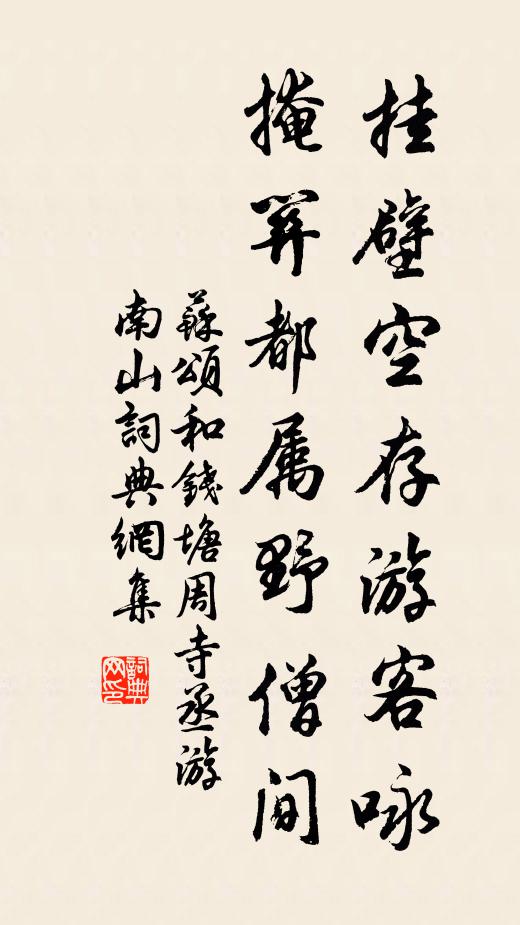 挂壁空存游客咏
掩关都属野僧间
蘇頌和錢塘周寺丞游
南山詞典網集
詞典网印